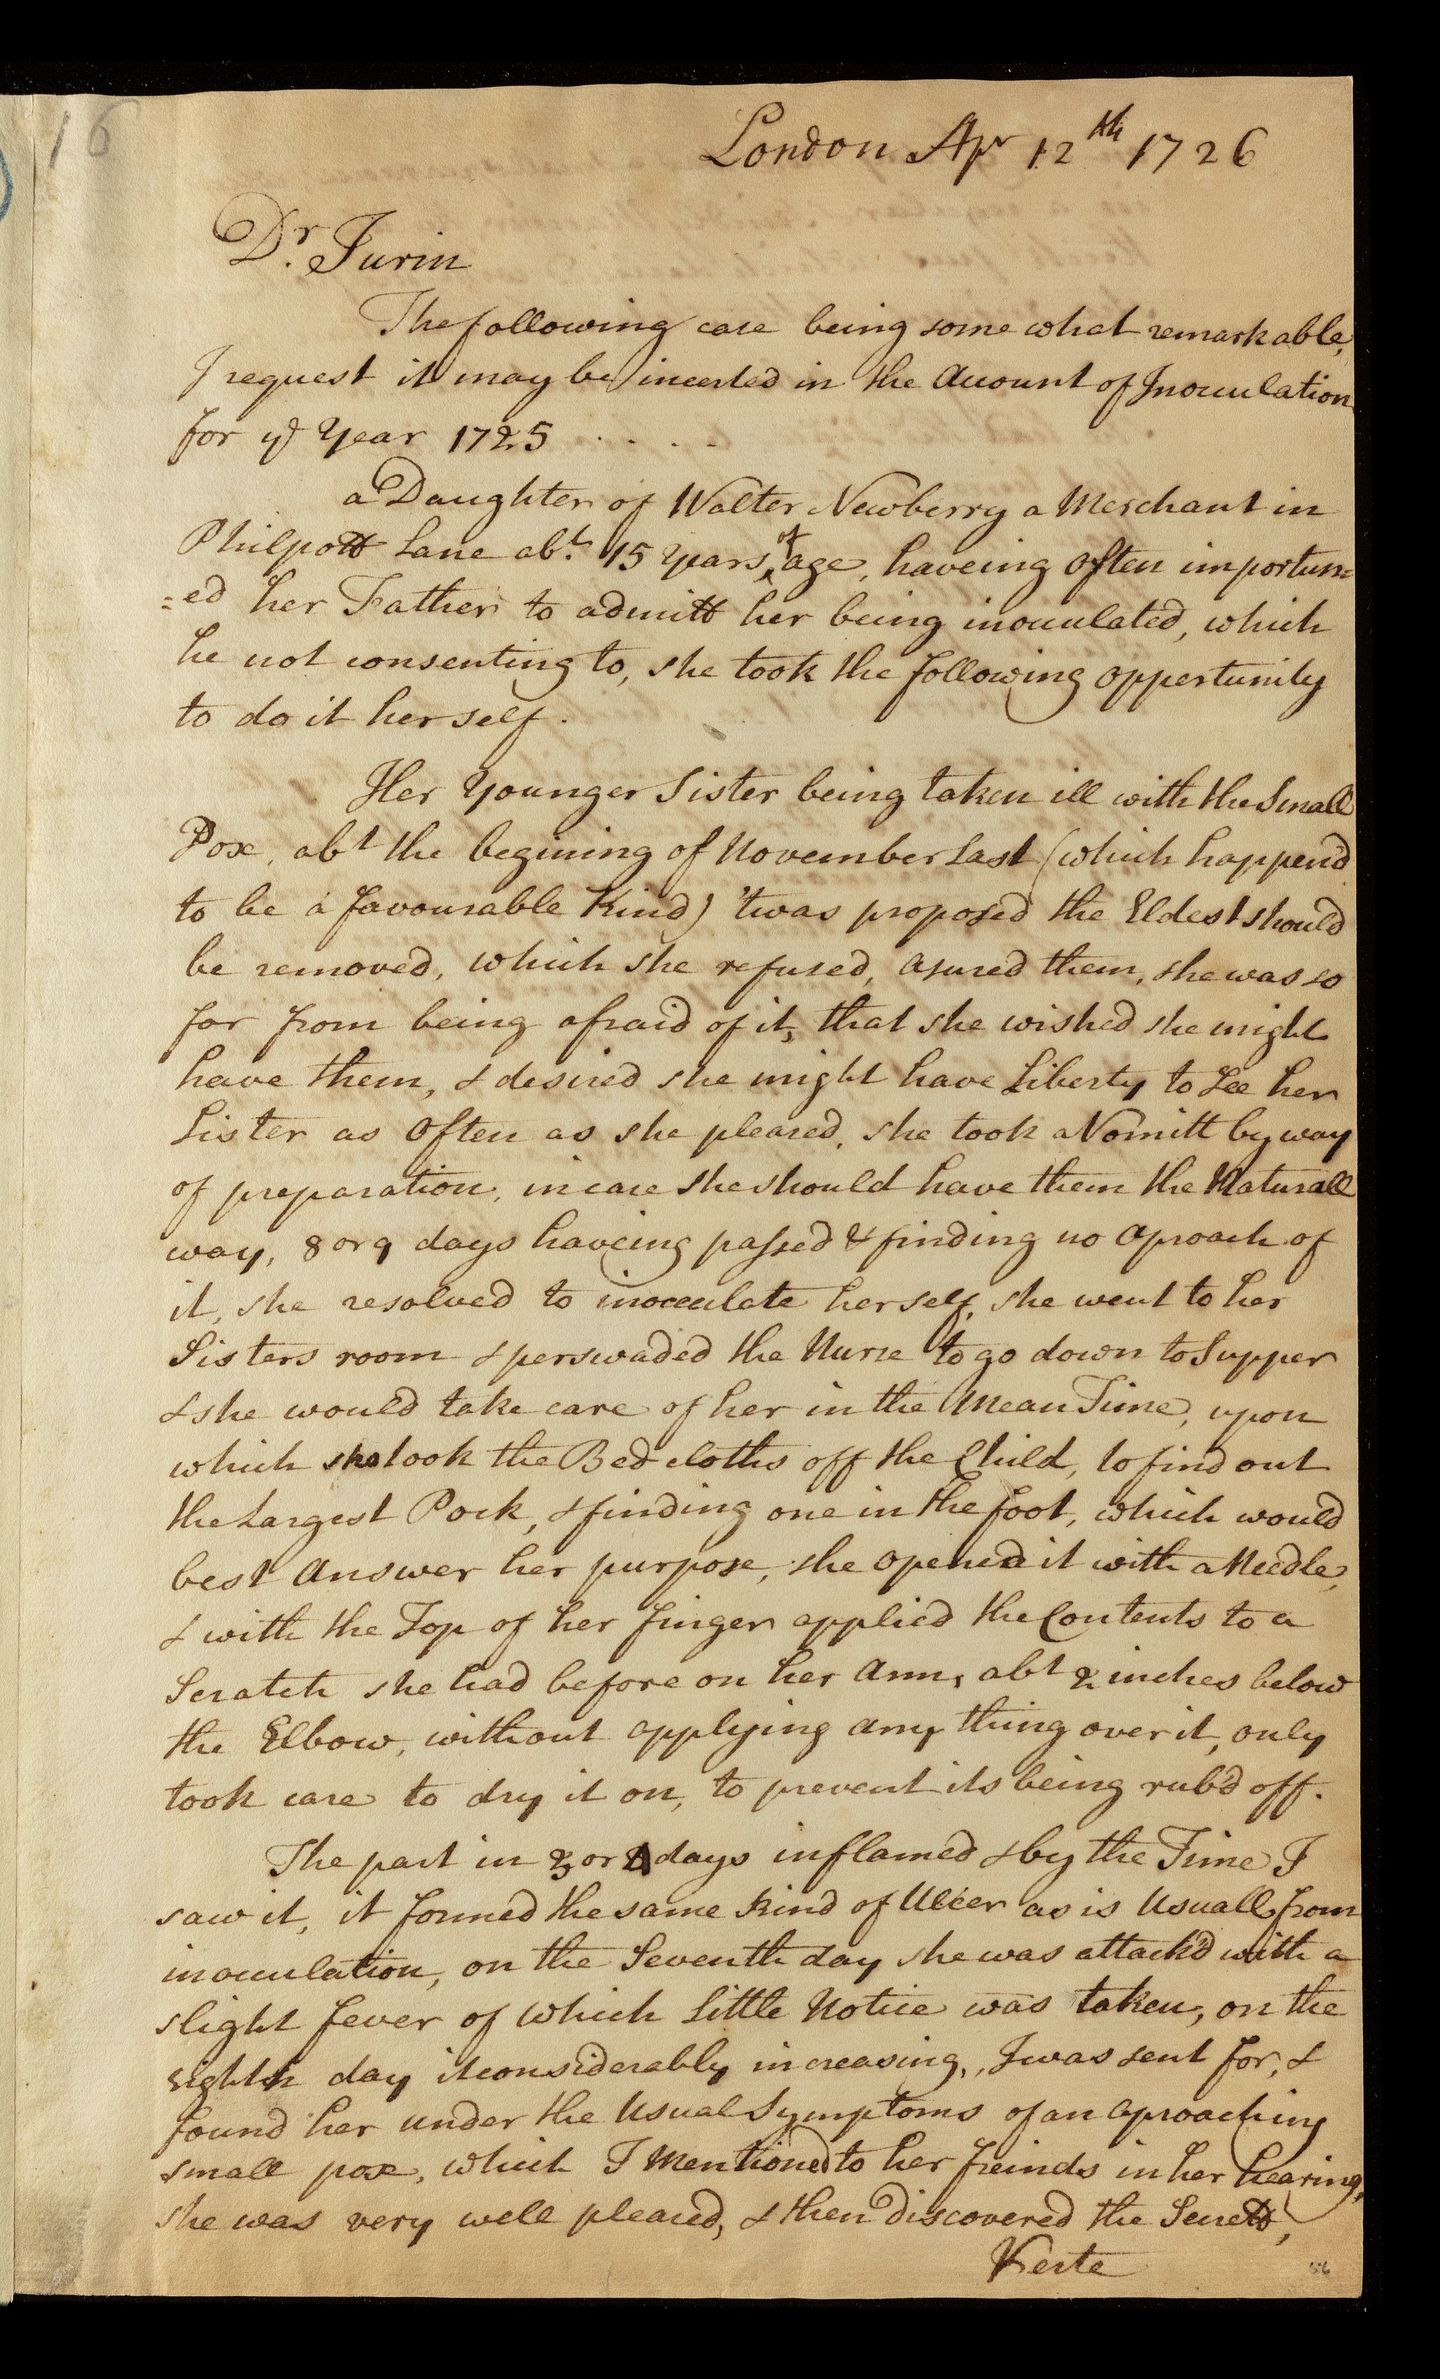 16
London Apr 12th 1726
Dr. Jurin
The following case being some what remarkable,
I request it may be incerted in the Account of Inoculation
for ye Year 1725 . . . .
a Daughter of Walter Newberry a Merchant in
Philpott Lane abt. 15 Years of age, haveing Often importun=
=ed her Father to admitt her being inoculated, which
he not consenting to, she took the following oppertunity
to do it herself.
Her Younger Sister being taken ill with the Small
Pox, abt the begining of November Last (which happen'd
to be a favourable Kind) 'twas proposed the Eldest should
be removed, which she refused, asured them, she was so
far from being afraid of it, that she wished she might
have them, & desired she might have Liberty to See her
Sister as Often as she pleased, she took a Vomitt by way
of preparation, in case she should have them the Naturall
way, 8 or 9 days haveing passed & finding no Aproach of
it, she resolved to inoculate herself, she went to her
Sisters room & perswaded the Nurse to go down to Supper
& she would take care of her in the Mean Time, upon
which she took the Bed cloths off the Child, to find out
the Largest Pock, & finding one in the foot, which would
best Answer her purpose, she opened it with a Needle,
& with the Top of her finger applied the Contents to a
Scratch she had before on her Arm, abt 2 inches below
the Elbow, without applying any thing over it, only
took care to dry it on, to prevent its being rub'd off.
The part in 3 or 4 days inflamed & by the Time I
saw it, it formed the same Kind of Ulcer as is Usuall from
inoculation, on the Seventh day she was attack'd with a
slight fever of which Little Notice was taken, on the
eighth day it considerably increasing, I was sent for, &
found her under the Usual Symptoms of an aproaching
small pox, which I Mentioned to her freinds in her hearing,
she was very well pleased, & then discovered the Secrett,
Kerte
56